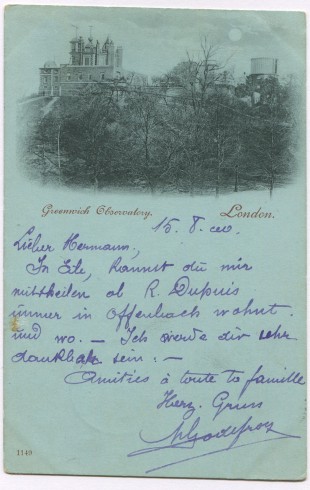 Greenwich Observatory. London.
15. 8.
Lieber Hermann,
In Eile, kannst du mir
mittheilen ob R. Dupuis
immer in Offenbach wohnt
und wo. — Ich werde dir sehr
dankbar sein. —
Amitiés à toute ta famille
Herz. Gruss
Godefroy
1149